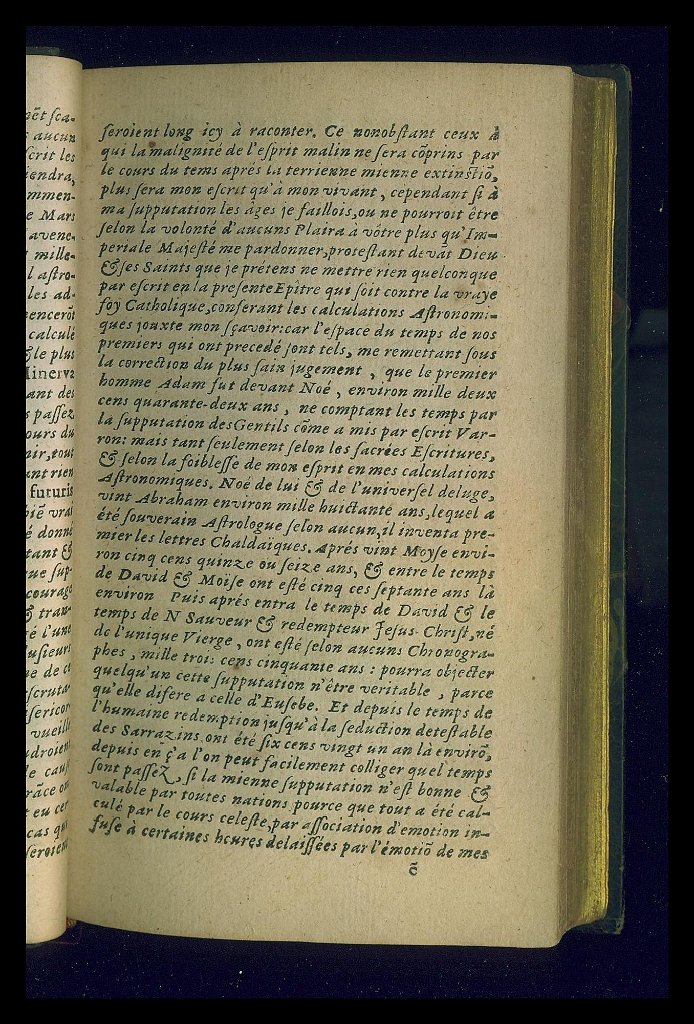 nẽt ſca-
aucun
ſcrit les
iendra,
mmen-
e Mars
avene-
mille-
l aſtro-
les ad-
encerõt
calculé
& le plus
Minerva
ant des
s paſſez
ours du
nir, tout
ent rien
futuris
biẽ vrai
é donné
tant &
que ſup-
courage
& tran-
é l'une
uſieurs
e de ce
ſcruta-
ſericor-
vueille
udroient
le cauſ
grâce ou
t eu cer
cas que
ſeroient
ſeroient long icy à raconter. Ce nonobſtant ceux à
qui la malignité de l'eſprit malin ne ſera cõprins par
le cours du tems aprés la terrienne mienne extinſtiõ,
plus ſera mon eſcrit qu'à mon vivant, cependant ſi à
ma ſupputation les âges je faillois, ou ne pourroit être
ſelon la volonté d'aucuns Plaira à vôtre plus qu'Im-
periale Majeſté me pardonner, proteſtant devãt Dieu
& ſes Saints que je prétens ne mettre rien quelconque
par eſcrit en la preſente Epitre qui ſoit contre la vraye
foy Catholique, conferant les calculations Aſtronomi-
ques jouxte mon ſçavoir: car l'eſpace du temps de nos
premiers qui ont precedé ſont tels, me remettant ſous
la correction du plus ſain jugement, que le premier
homme Adam fut devant Noé, environ mille deux
cens quarante-deux ans, ne comptant les temps par
la ſupputation des Gentils cõme a mis par eſcrit Var-
ron: mais tant ſeulement ſelon les ſacrées Eſcritures,
& ſelon la foibleſſe de mon eſprit en mes calculations
Aſtronomiques. Noé de lui & de l'univerſel deluge,
vint Abraham environ mille huictante ans, lequel a
été ſouverain Aſtrologue ſelon aucun, il inventa pre-
mier les lettres Chaldaïques. Aprés vint Moyſe envi-
ron cinq cens quinze ou ſeize ans, & entre le temps
de David & Moiſe ont eſté cinq ces ſeptante ans là
environ Puis aprés entra le temps de David & le
temps de N Sauveur & redempteur Jeſus-Chriſt, né
de l'unique Vierge, ont eſté ſelon aucuns Chronogra-
phes, mille troi: cens cinquante ans : pourra objecter
quelqu'un cette ſupputation n'être veritable, parce
qu'elle difere a celle d'Euſebe. Et depuis le temps de
l'humaine redemption juſqu'à la ſeduction deteſtable
des Sarrazins ont été ſix cens vingt un an là envirõ,
depuis en ç'a l'on peut facilement colliger quel temps
ſont paſſeZ, ſi la mienne ſupputation n'eſt bonne &
valable par toutes nations, pource que tout a été cal-
culé par le cours celeſte, par aſſociation d'emotion in-
fuſe à certaines heures delaiſſées par l'émotiõ de mes
ẽ